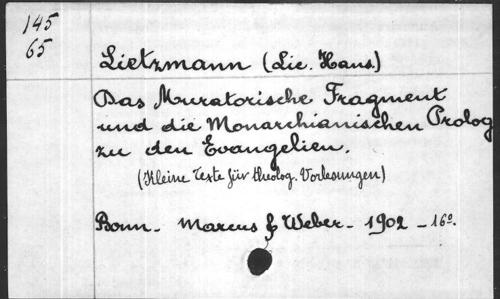 145
65
Lietzmann (Lic. Hans.)
Das Muratorische Fragment
und die Monarchianischen Prolog
zu den Evangelien.
(Kleine Texte für theolog. Vorlesungen)
Bonn - Marcus & Weber - 1902 - 16°.